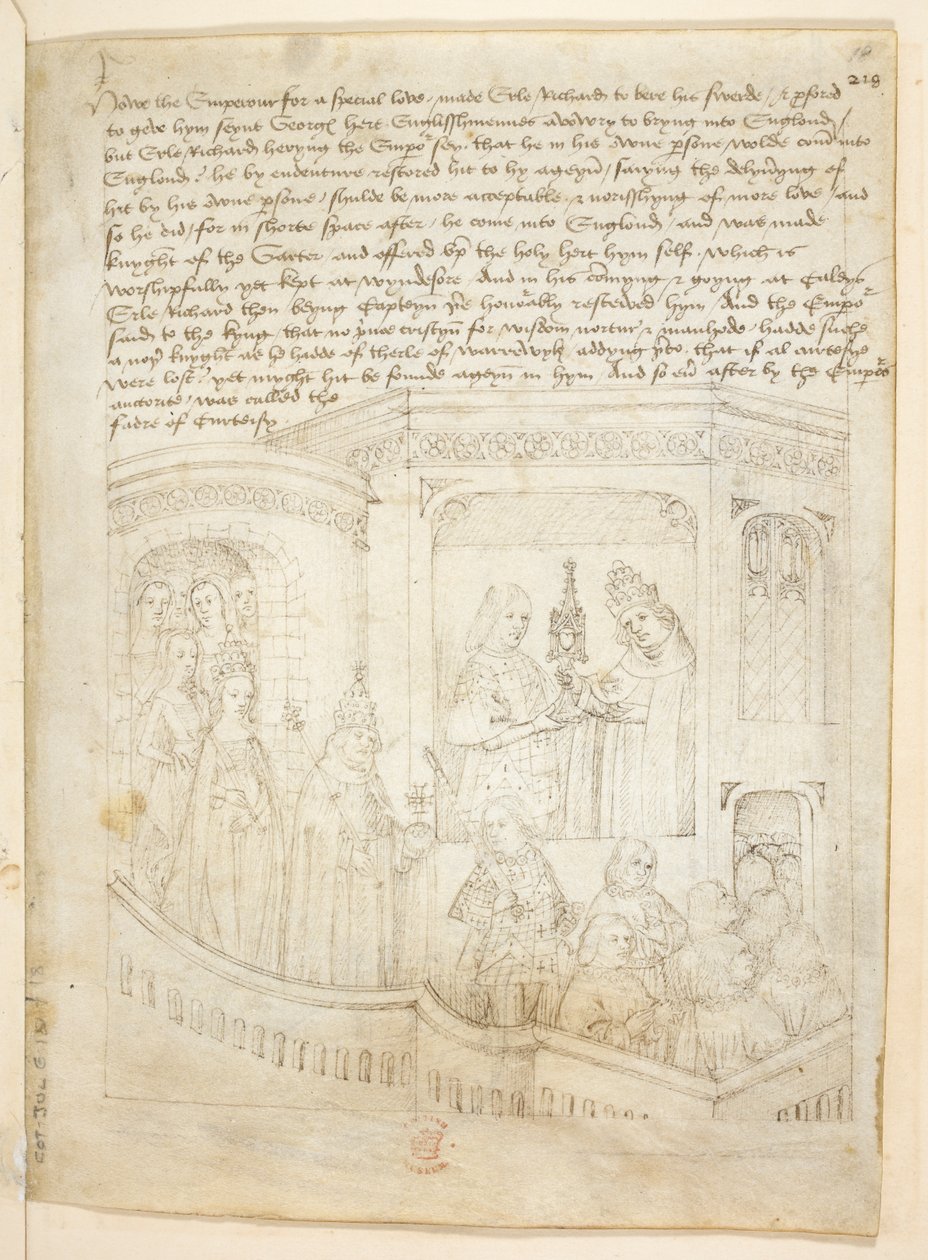 18
218
Nowe the Emperour for a special love . made Erle Richard to bere his swerde / & pfered
to geve hym seynt Georgs hert . Englisshmennes avowry to bryng into Englond /
but Erle Richard heryng the Empor sey . that he in his owne psone wolde com into
Englond / he by endenture restored hit to hy ageyn / saiyng the delyvyng of
hit by his owne psone / shulde be more acceptable . & norisshyng of more love / and
so he did / for in shorte space after / he come into Englond / and was made
knyght of the Garter . and offered vp the holy hert hym self . which is
worshipfully yet kept at wyndesore . And in his comyng & goyng at Caleys
Erle Richard then beyng Capteyn honorably resceived hym / And the Empor
said to the kyng . that no pince cristyn for wisdom nortur & manhode . hadde suche
a noyr knyght as he hadde of therle of warrewyk . addyng pto . that if al curtesye
were lost / yet myght hit be founde ageyn in hym / And so eu after by the Emperors
auctorite . was called the
fadre of Curteisy .
COT. JUL E IV / 18
BRITISH
MUSEUM